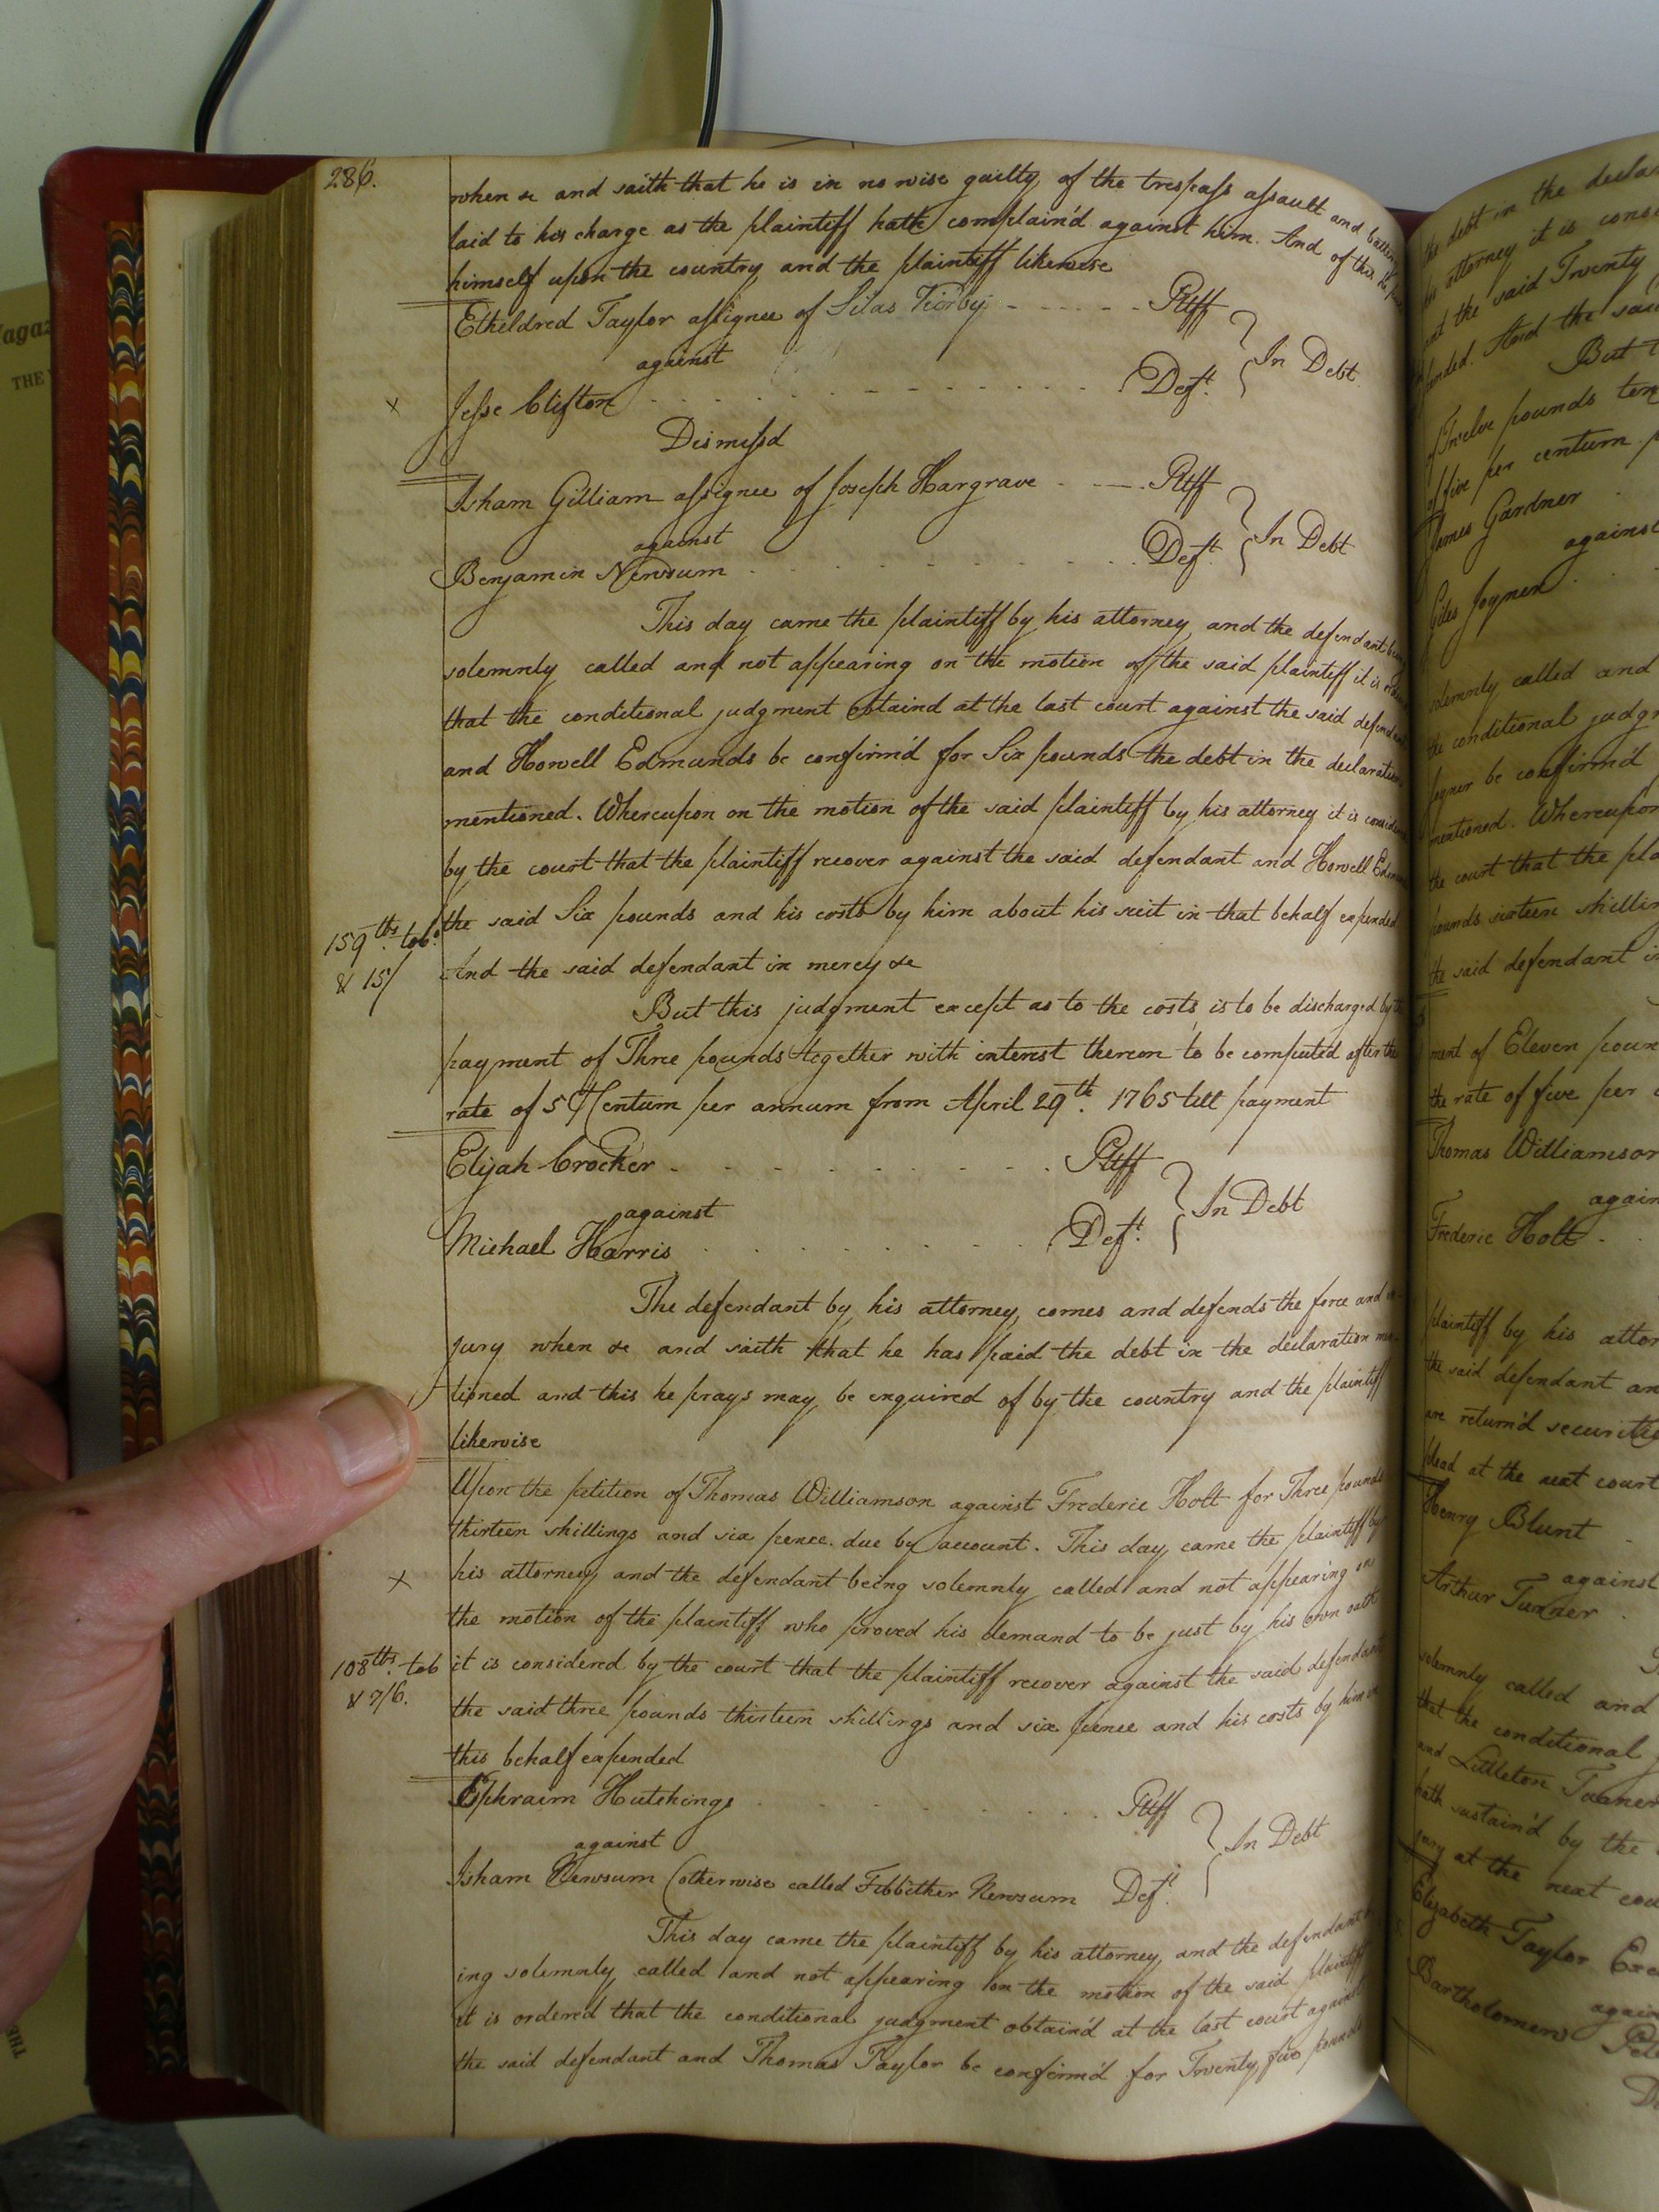 286.
when &c and saith that he is in no wise guilty of the trespass assault and
laid to his charge as the plaintiff hath complain'd against him. And of this he
himself upon the country and the plaintiff likewise
Etheldred Taylor assignee of Silas Kirby - - - - - Pltff
against } In Debt
x Jesse Clifton . . . . . . Deft.
Dismissd
Isham Gilliam assignee of Joseph Hargrave - - Pltff
against } In Debt
Benjamin Newsum . . . . . . Deft.
This day came the plaintiff by his attorney and the defendant being
solemnly called and not appearing on the motion of the said plaintiff it is
that the conditional judgment obtaind at the last court against the said defendant
and Howell Edmunds be confirm'd for Six pounds the debt in the declaration
mentioned. Whereupon on the motion of the said plaintiff by his attorney it is
by the court that the plaintiff recover against the said defendant and Howell
159 lbs. tobo. the said Six pounds and his costs by him about his suit in that behalf expended
& 15/ And the said defendant in mercy &c
But this judgment except as to the costs is to be discharged by the
payment of Three pounds together with interest thereon to be computed after the
rate of 5 Centum per annum from April 29th. 1765 till payment
Elijah Crocker . . . . . . Pltff
against } In Debt
Michael Harris . . . . . . Deft.
The defendant by his attorney comes and defends the force and in-
jury when &c and saith that he has paid the debt in the declaration men-
tioned and this he prays may be enquired of by the country and the plaintiff
likewise
Upon the petition of Thomas Williamson against Frederic Holt for Three pounds
thirteen shillings and six pence. due by account. This day came the plaintiff by
x his attorney and the defendant being solemnly called and not appearing on
the motion of the plaintiff who proved his demand to be just by his own oath
108 lbs. tob it is considered by the court that the plaintiff recover against the said defendant
& 7/6. the said three pounds thirteen shillings and six pence and his costs by him in
this behalf expended
Ephraim Hutchings . . . . . . Pltff
against } In Debt
Isham Newsum (otherwise called Newsum Deft.
This day came the plaintiff by his attorney and the defendant
ing solemnly called and not appearing on the motion of the said plaintiff
it is ordered that the conditional judgment obtain'd at the last court against
the said defendant and Thomas Taylor be confirm'd for Twenty five pounds
the debt in the
attorney it is
the said Twenty
And the said
But
Twelve pounds ten
of five per centum
James Gardner
against
Giles Joyner
solemnly called and
the conditional
Joyner be confirm'd
mentioned. Whereupon
the court that the
pounds sixteen
the said defendant
ment of Eleven
the rate of five per
Thomas Williamson
Frederic Holt
plaintiff by his
the said defendant
are return'd
plead at the next court
Henry Blunt
against
Arthur Turner
solemnly called and
that the conditional
and Littleton
hath sustain'd by the
jury at the next
Elizabeth Taylor
Bartholomew
THE